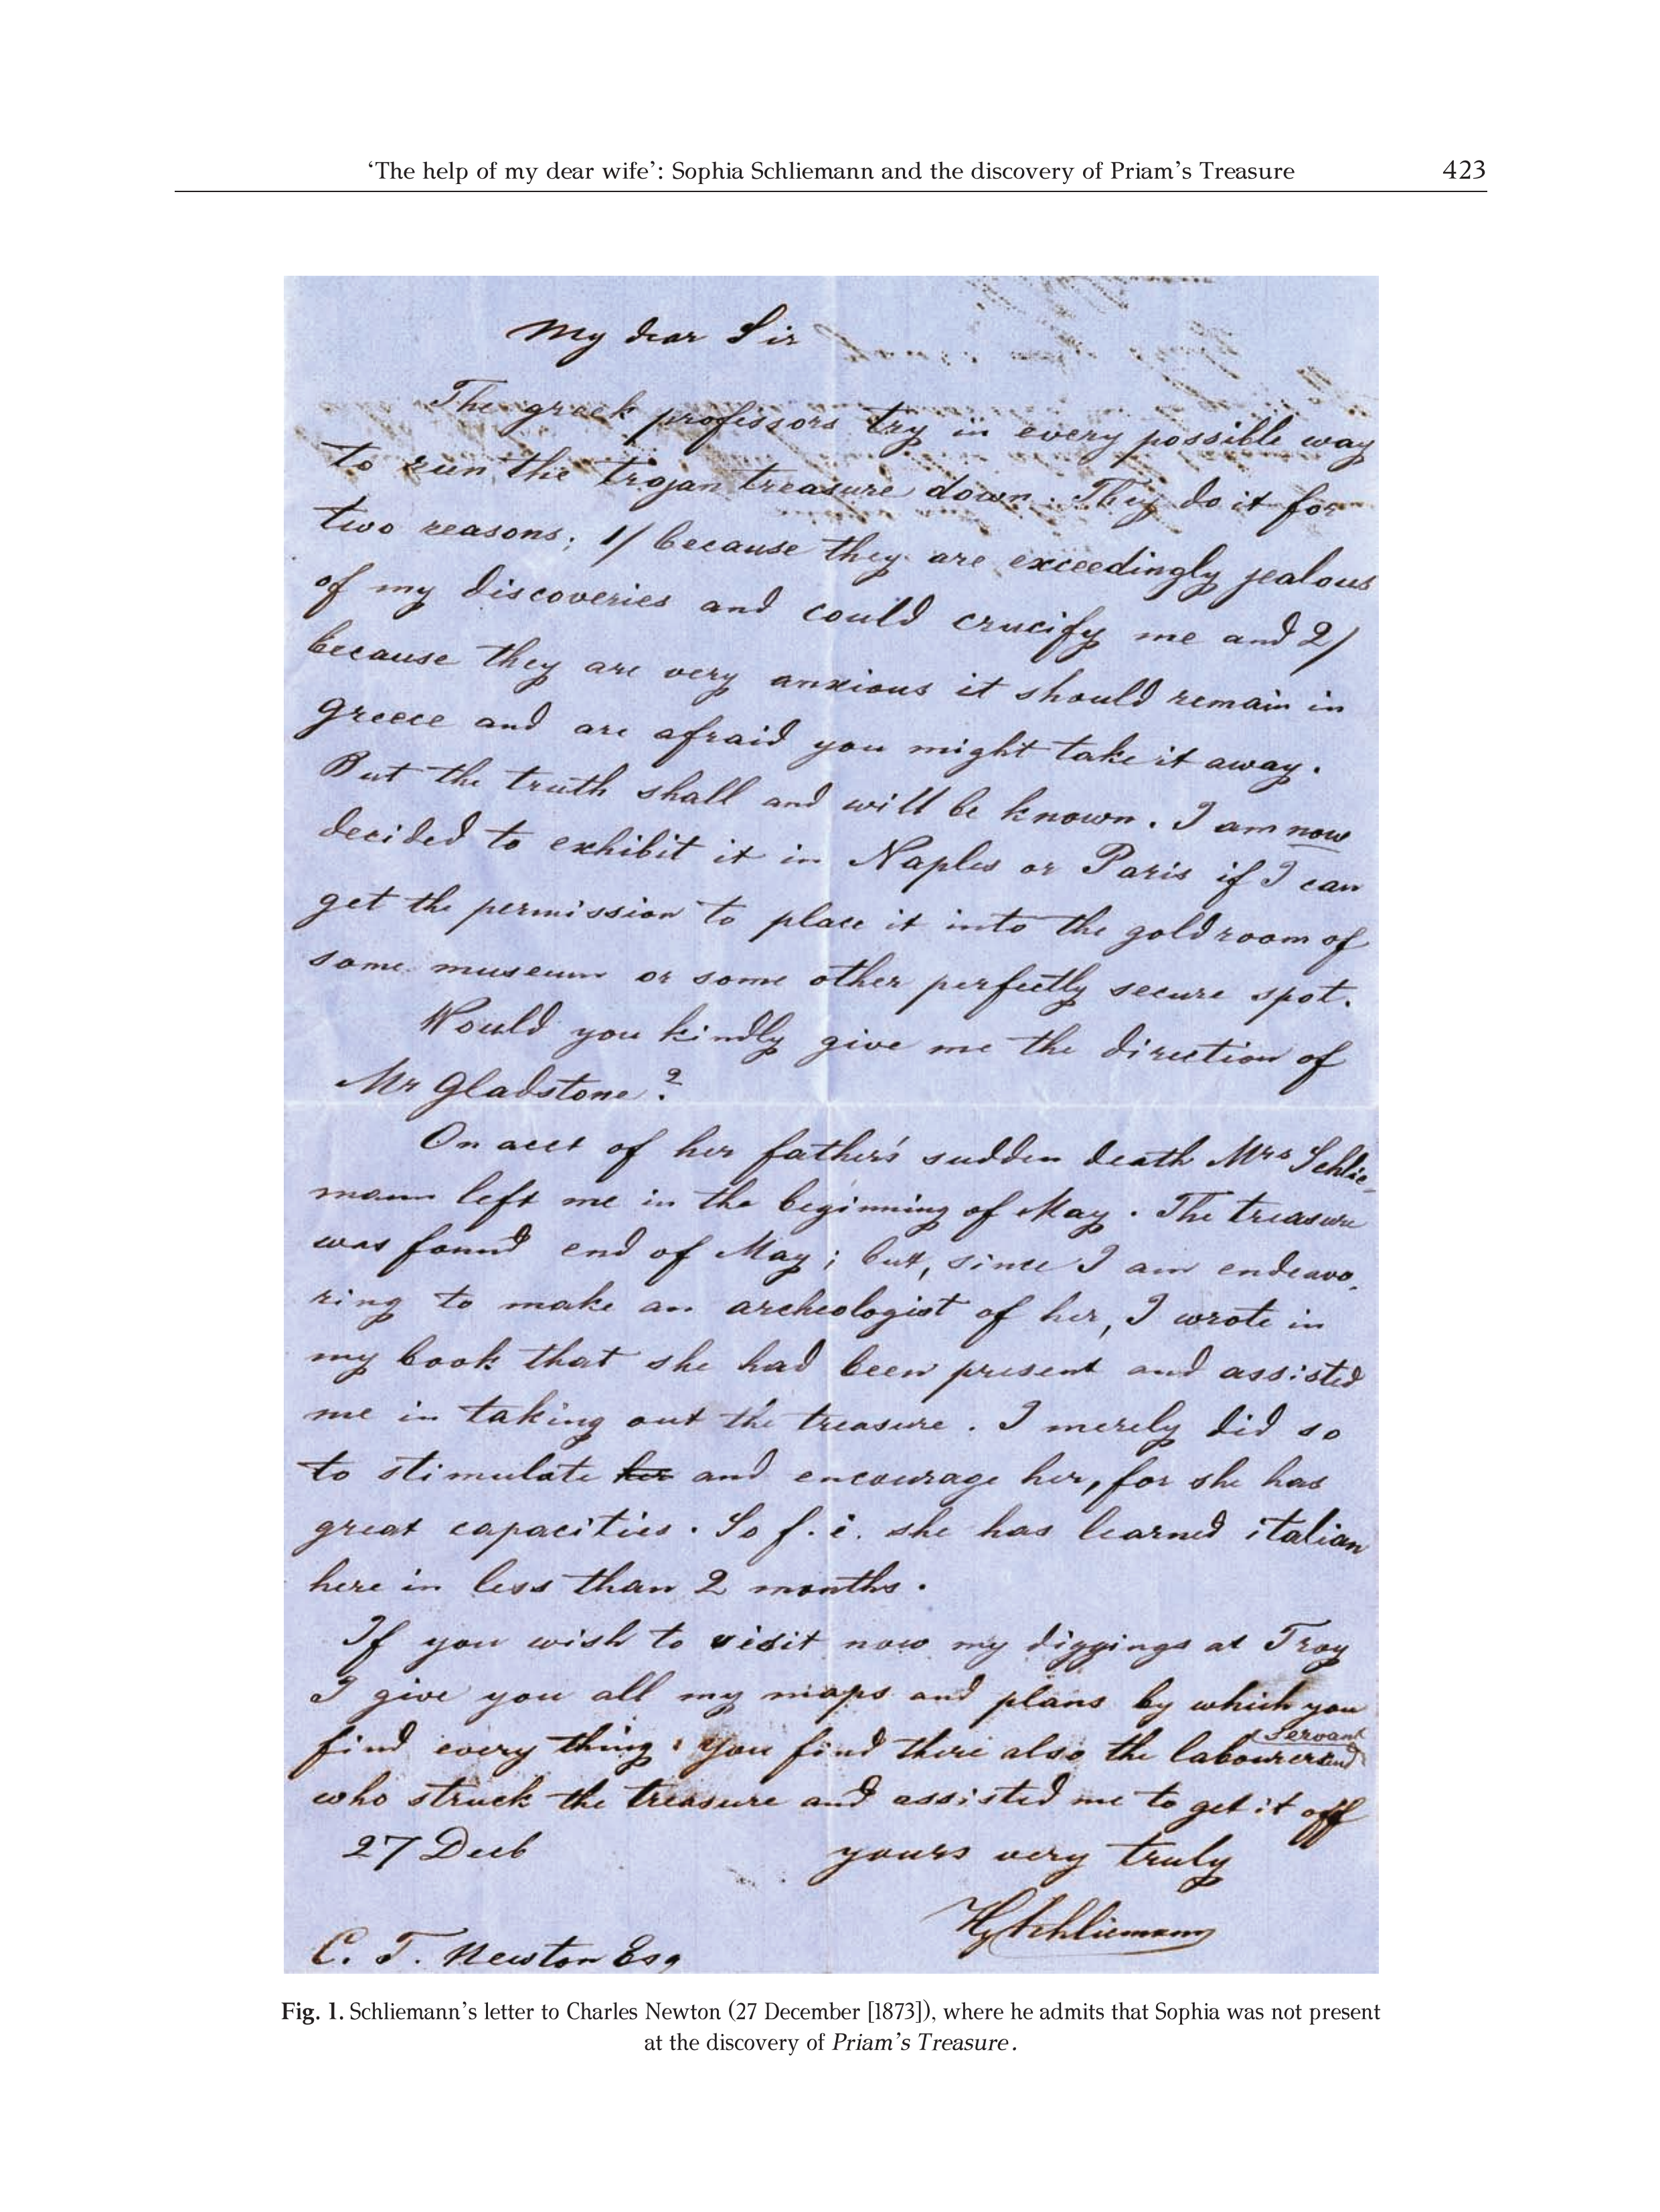 ‘The help of my dear wife’: Sophia Schliemann and the discovery of Priam’s Treasure 423
My dear Sir
The greek professors try in every possible way
to run the trojan treasure down. They do it for
two reasons; 1/ because they are exceedingly jealous
of my discoveries and could crucify me and 2/
because they are very anxious it should remain in
Greece and are afraid you might take it away.
But the truth shall and will be known. I am now
decided to exhibit it in Naples or Paris if I can
get the permission to place it into the gold room of
some museum or some other perfectly secure spot.
Would you kindly give me the direction of
Mr Gladstone?
On acct of her father's sudden death Mrs Schlie-
mann left me in the beginning of May. The treasure
was found end of May; but, since I am endeavo-
ring to make an archeologist of her, I wrote in
my book that she had been present and assisted
me in taking out the treasure. I merely did so
to stimulate her and encourage her, for she has
great capacities. So f. i. she has learned italian
here in less than 2 months.
If you wish to visit now my diggings at Troy
I give you all my maps and plans by which you
find every thing. You find there also the labourer and servant
who struck the treasure and assisted me to get it off
27 Decb yours very truly
Hy Schliemann
C. T. Newton Esq
Fig. 1. Schliemann’s letter to Charles Newton (27 December [1873]), where he admits that Sophia was not present
at the discovery of Priam’s Treasure.